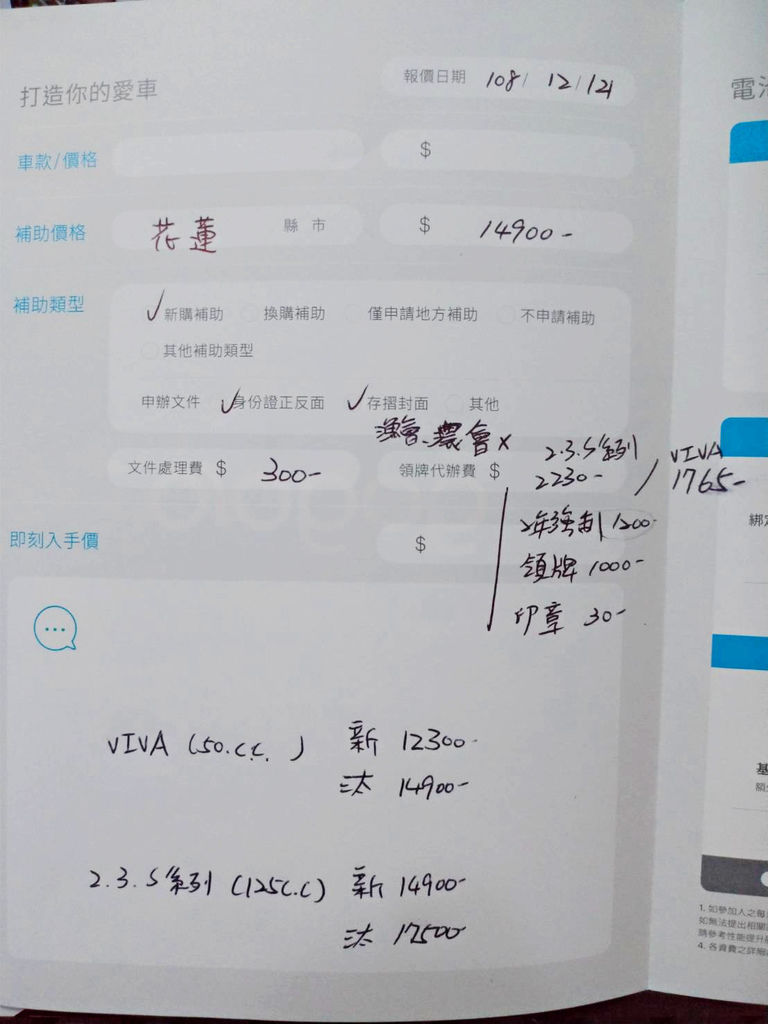 打造你的愛車
報價日期 108/ 12/ 21
車款/價格 $
補助價格 花蓮 縣 市 $ 14900-
補助類型 ✓新購補助 換購補助 僅申請地方補助 不申請補助
其他補助類型
申辦文件 ✓身份證正反面 ✓存摺封面 其他
漁會、農會 x
文件處理費 $ 300- 領牌代辦費 $
2.3.S系列 2230- / VIVA 1765-
2年強制 1200-
領牌 1000-
印章 30-
即刻入手價 $
VIVA (50.c.c.) 新 12300-
汰 14900-
2.3.S系列 (125C.C) 新 14900-
汰 17500-
電池
綁定
基
額
1. 如參加人之每
如無法提出相關
請參考性能提升
4. 各資費之詳細